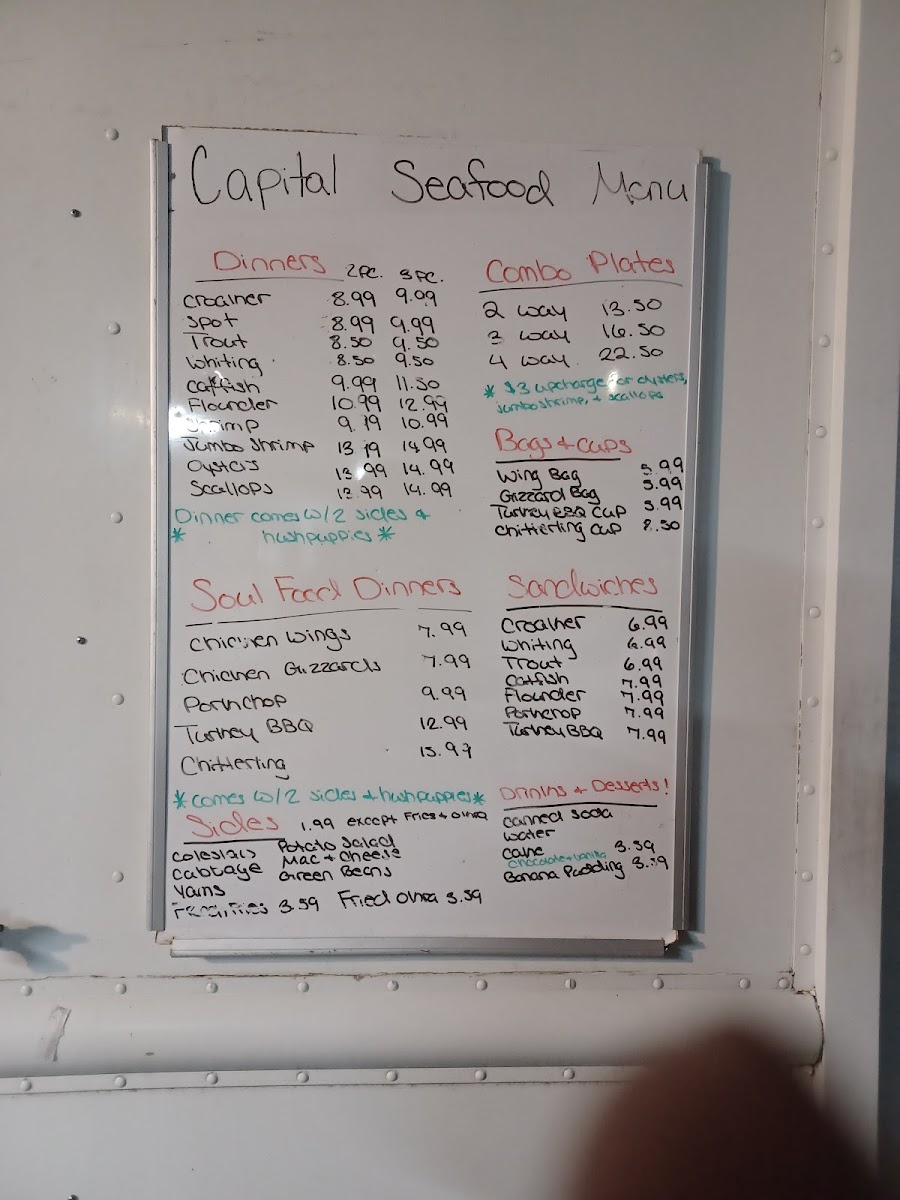 Capital Seafood Menu
Dinners 2PC. 3PC.
Croaker 8.99 9.99
Spot 8.99 9.99
Trout 8.50 9.50
Whiting 8.50 9.50
Catfish 9.99 11.50
Flounder 10.99 12.99
Shrimp 9.99 10.99
Jumbo Shrimp 13.99 14.99
Oysters 13.99 14.99
Scallops 13.99 14.99
Dinner comes w/2 sides &
* hushpuppies *
Combo Plates
2 way 13.50
3 way 16.50
4 way 22.50
* $3 upcharge for oysters,
jumbo shrimp, + scallops
Bags + Cups
Wing Bag 5.99
Gizzard Bag 5.99
Turkey BBQ Cup 5.99
Chitterling Cup 8.50
Soul Food Dinners
Chicken Wings 7.99
Chicken Gizzards 7.99
Porkchop 9.99
Turkey BBQ 12.99
Chitterling 15.99
*comes w/2 sides + hushpuppies*
Sandwiches
Croaker 6.99
Whiting 6.99
Trout 6.99
Catfish 7.99
Flounder 7.99
Porkchop 7.99
Turkey BBQ 7.99
Sides 1.99 except Fries + Okra
Coleslaw Potato Salad
Cabbage Mac + Cheese
Yams Green Beans
Fries 3.59 Fried Okra 3.59
Drinks + Desserts!
Canned Soda
Water
Cake 3.59
Chocolate + Vanilla
Banana Pudding 3.59